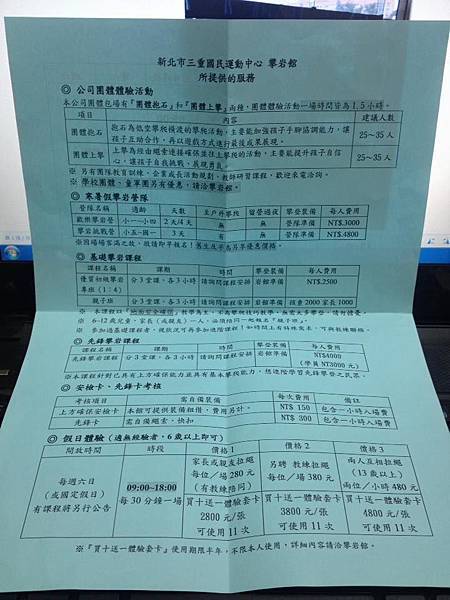 新北市三重國民運動中心 攀岩館
所提供的服務
◎ 公司團體體驗活動
本公司團體包場有『團體抱石』和『團體上攀』兩種,團體體驗活動一場時間皆為1.5小時。
項目 內容 建議人數
團體抱石 抱石為低空攀爬橫渡的攀爬活動,主要能加強孩子手腳協調能力,讓孩子互助合作,再以遊戲方式進行最後成果展現。 25~35人
團體上攀 上攀為經由繩索連接確保並往上攀爬的活動,主要能提升孩子自信心,讓孩子自我挑戰,展現勇氣。 25~35人
※ 另有團隊教育訓練、企業成長活動規劃、教師研習課程,歡迎來電洽詢。
※ 學校團體、童軍團另有優惠,請洽攀岩館。
◎ 寒暑假攀岩營隊
營隊名稱 適齡 天數 至戶外攀登 留營過夜 攀登裝備 每人費用
歡樂攀岩營 小一~小四 2天/4天 無 無 營隊準備 NT$.3000
攀岩挑戰營 小五~國一 3天 有 無 營隊準備 NT$.4800
※因場場客滿之故,敬請即早報名!舊生及手足另享優惠價格。
◎ 基礎攀岩課程
課程名稱 課期 時間 攀登裝備 每人費用
優質初級攀岩專班(1:4) 分3堂課,各3小時 請詢問課程安排 岩館準備 NT$.2500
親子班 分3堂課,各3小時 請詢問課程安排 岩館準備 孩童2000 家長1000
※ 6-12歲兒童,家長(或親友)一人,必須陪同一起報名『親子班』。
◎ 先鋒攀岩課程
課程名稱 課期 時間 攀登裝備 每人費用
先鋒攀岩課程 分3堂課,各3小時 請詢問課程安排 岩館準備 NT$4000
(學員 NT3000元)
※本課程針對已具有上方確保能力並具有基本攀爬能力,想進階學習先鋒攀登之民眾。
◎ 安檢卡、先鋒卡考核
考核項目 需自備裝備 每次費用 備註
上方確保安檢卡 本館可提供裝備租借,費用另計。 NT$ 150 包含一小時入場費
先鋒卡 需自備繩索、快扣 NT$ 300 包含一小時入場費
◎ 假日體驗(適無經驗者,6歲以上即可)
開放時間 時段 價格1 價格2 價格3
每週六日
(或國定假日)
有課程將另行公告
09:00~18:00
每30分鐘一場
家長或親友拉繩
每位/場 280元
(有教練陪同)
另聘 教練拉繩
每位/場 380元
兩人互相拉繩
(13歲以上)
兩位/小時 480元
買十送一體驗套卡
2800元/張
可使用11次
買十送一體驗套卡
3800元/張
可使用11次
買十送一體驗套卡
4800元/張
可使用11次
※『買十送一體驗套卡』使用期限半年,不限本人使用,詳細內容請洽攀岩館。